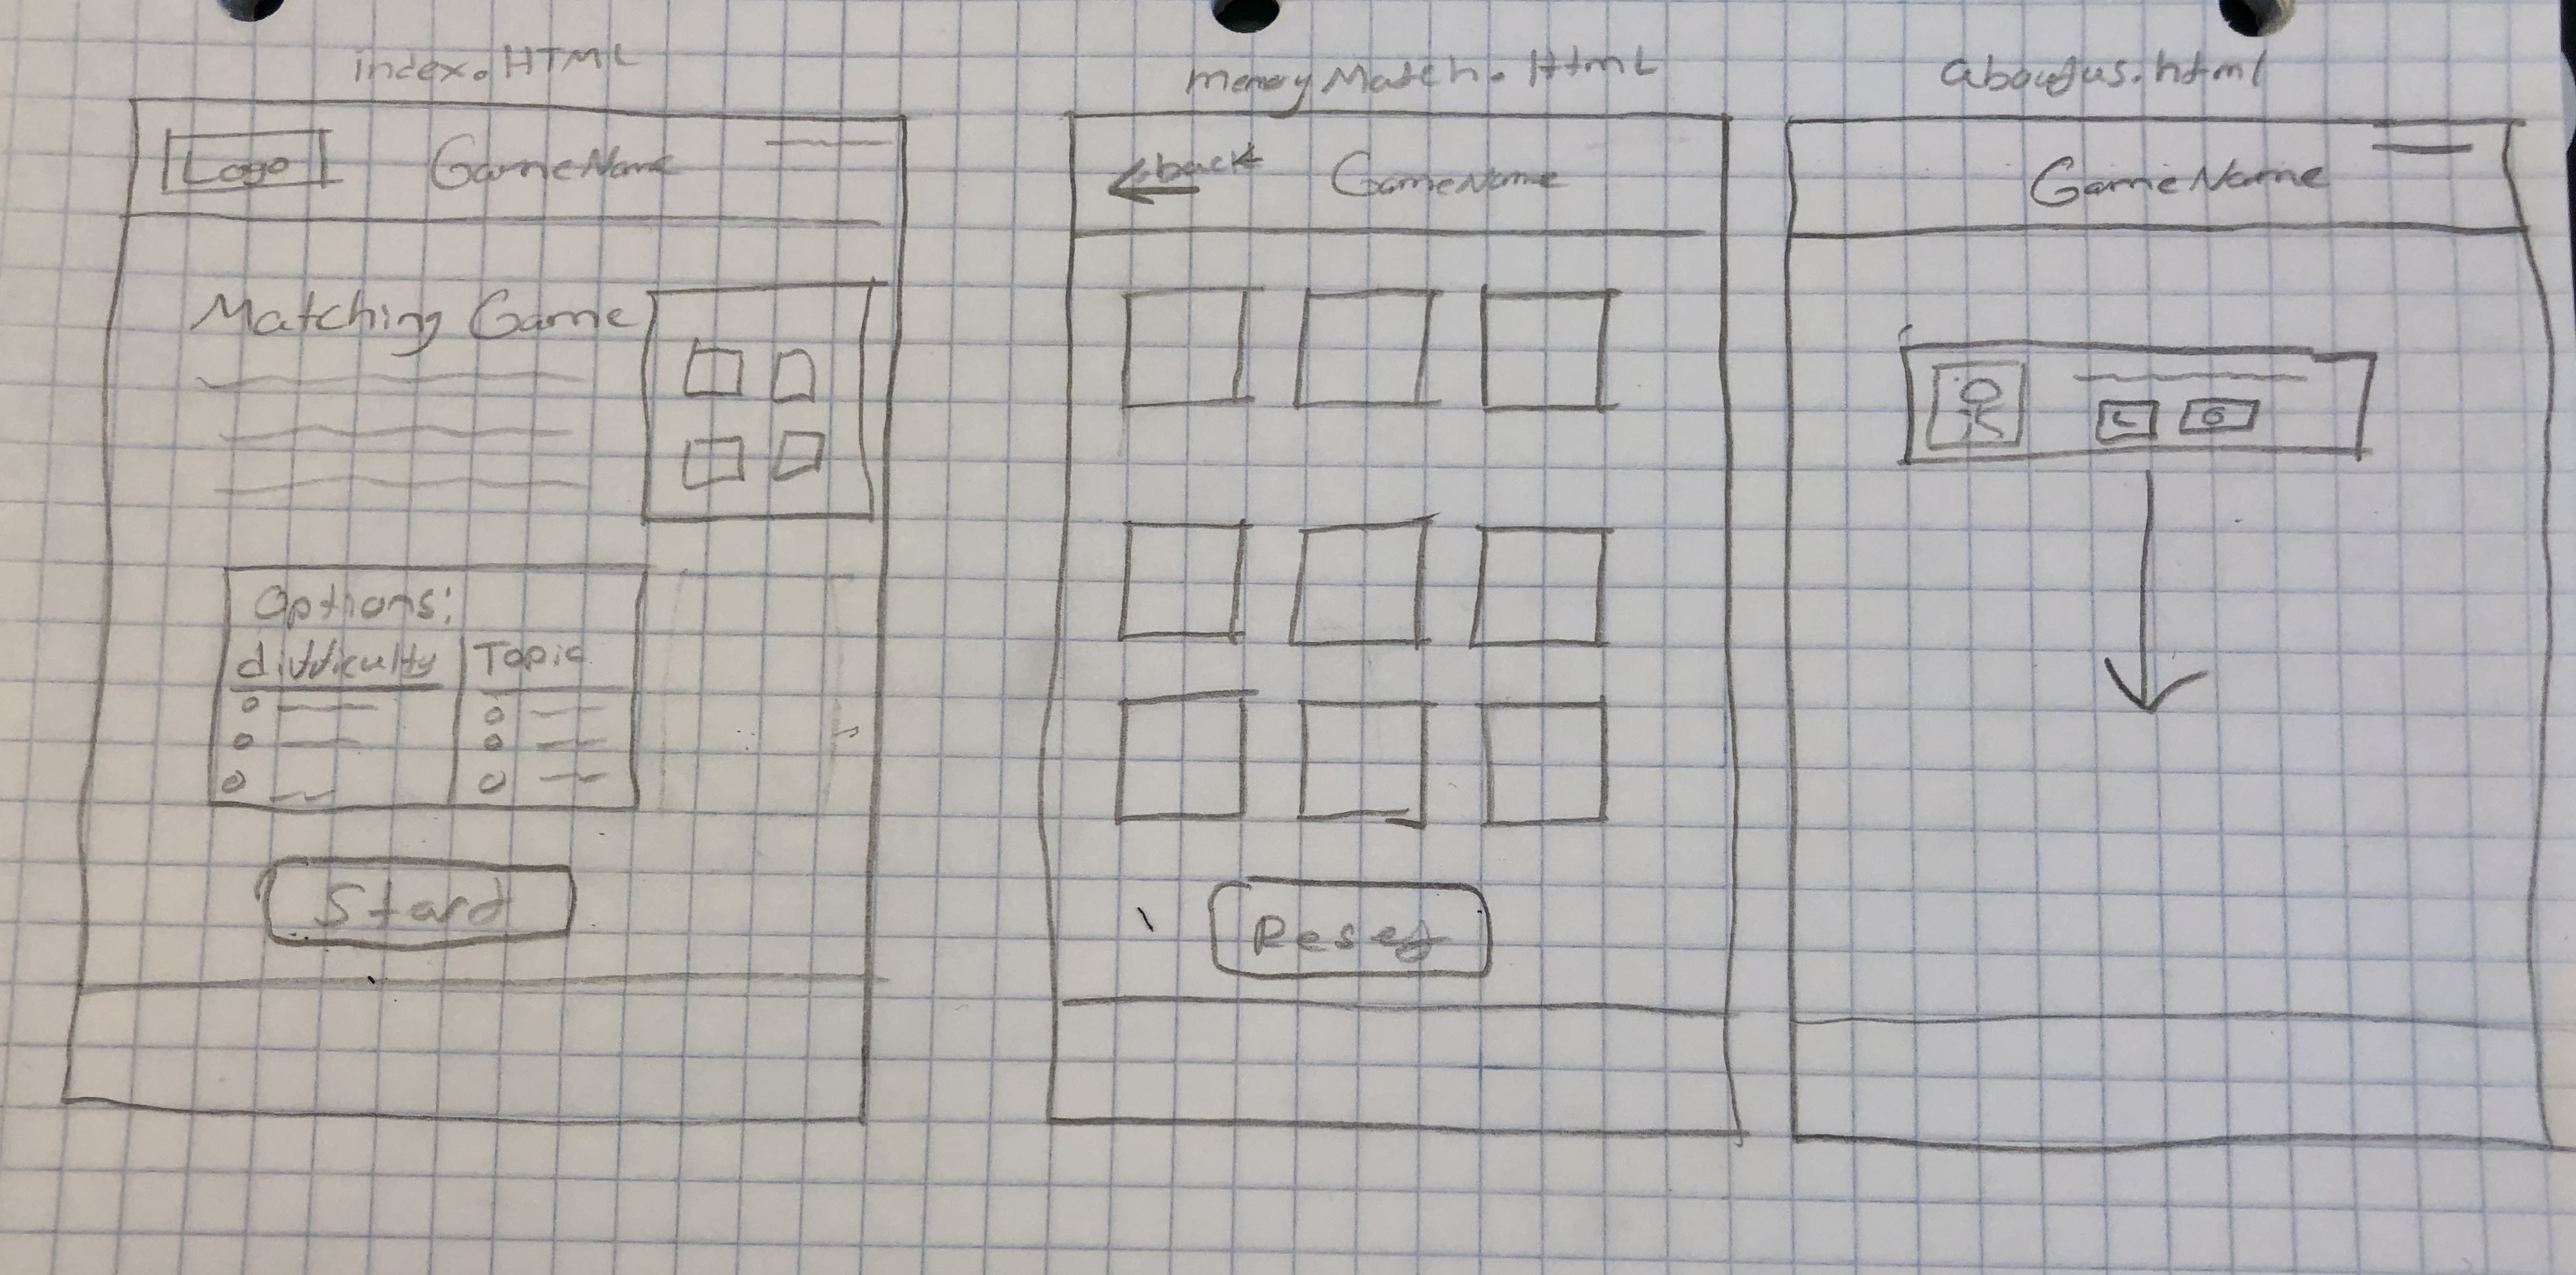 index.HTML
Logo
GameName
Matching Game
Options:
difficulty
Topic
Start
memoy Match.HtmL
back
GameName
Reset
aboutus.html
GameName
L
G